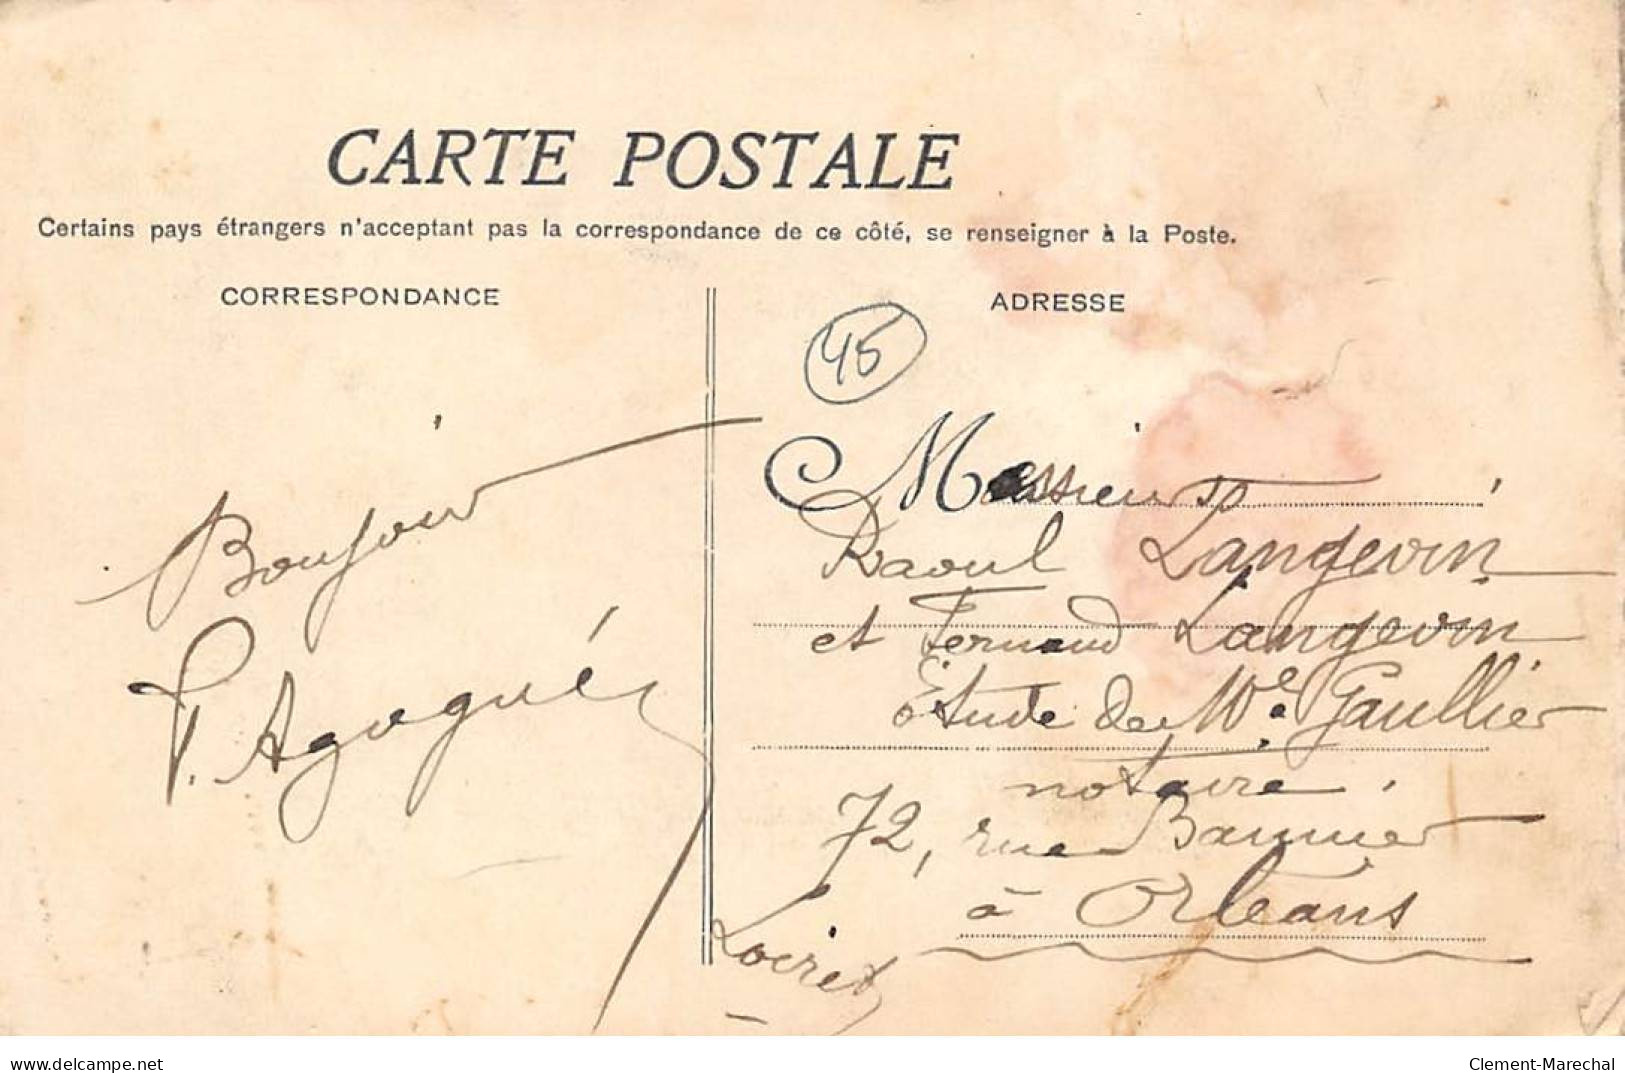 CARTE POSTALE
Certains pays étrangers n'acceptant pas la correspondance de ce côté, se renseigner à la Poste.
CORRESPONDANCE
Bonjour
P. Agogué
ADRESSE
45
Messieurs
Raoul Langevin
et Fernand Langevin
Etude de Me Gaullier
notaire.
72, rue Bannier
à Orléans
Loiret
www.delcampe.net
Clement-Marechal